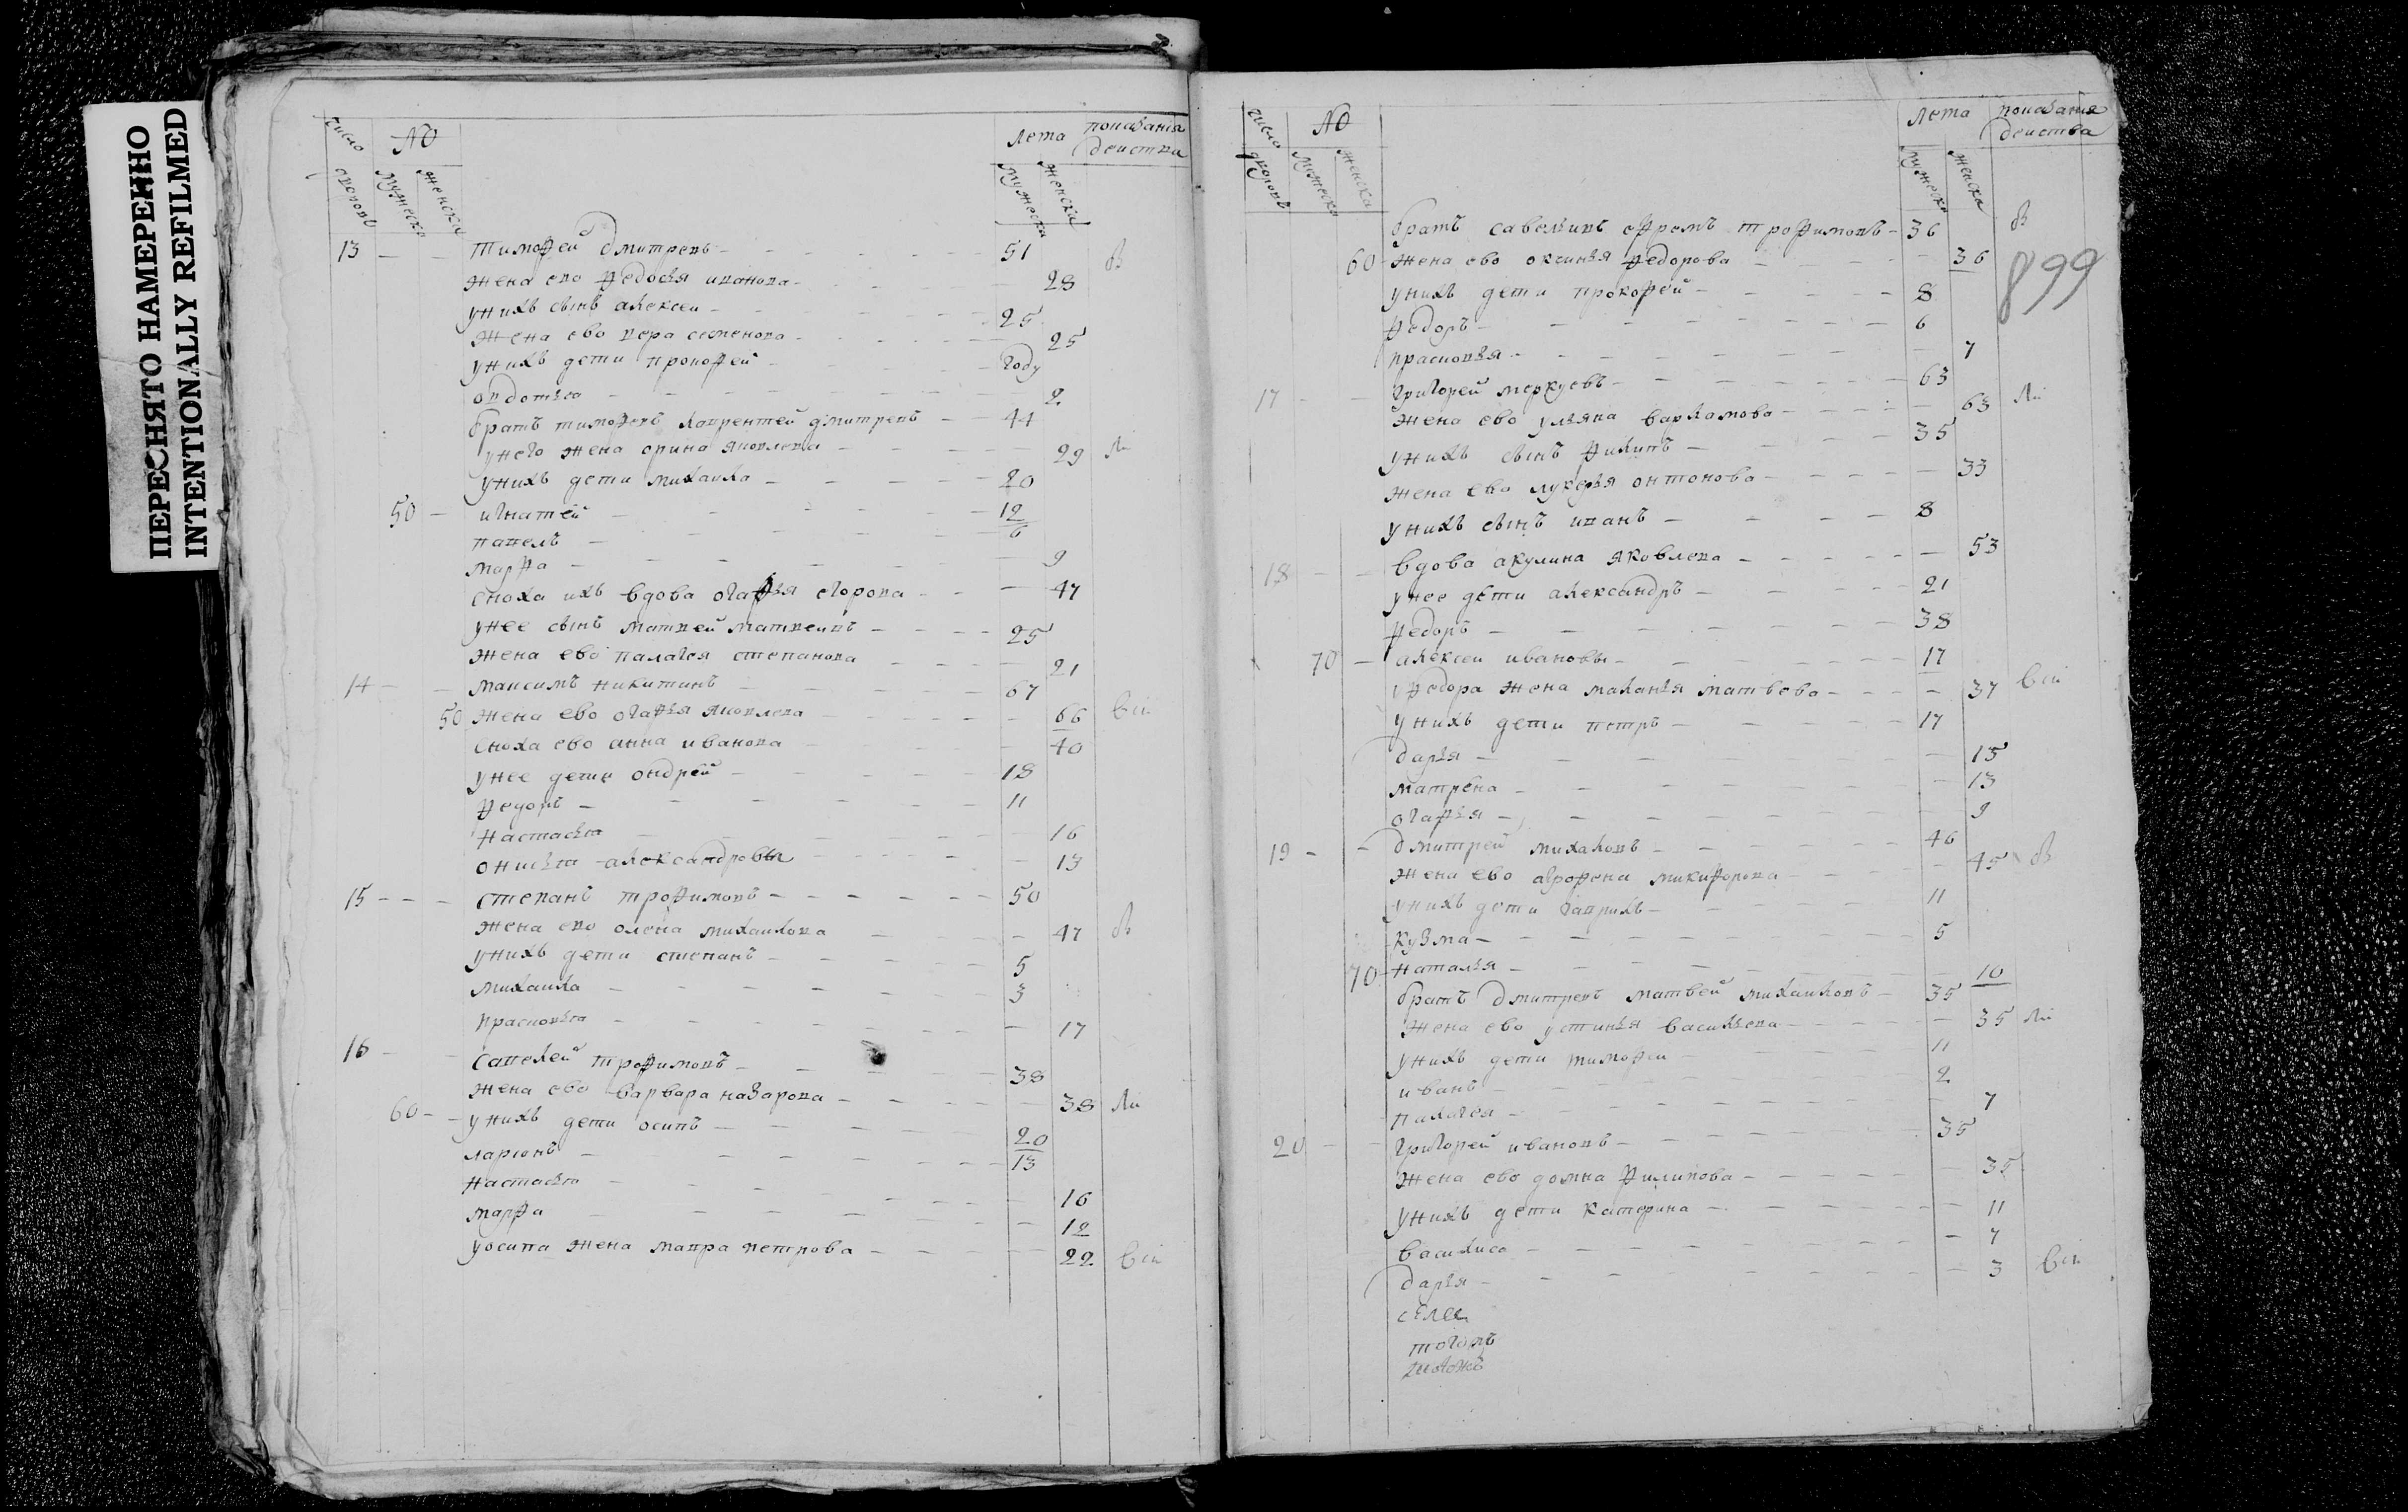 ПЕРЕСНЯТО НАМЕРЕННО
INTENTIONALLY REFILMED
число дворовъ
№
мужеска
женска
Лета
мужеска
женска
показания действа
13 - - тимофей дмитревъ - 51
жена ево федосья иванова - 28
у нихъ сынъ алексеи - 25
жена ево вера семенова - 25
у нихъ дети прокофей - году
овдотья - 2
братъ тимофевъ лаврентей дмитревъ - 44
у него жена орина яковлева - 29
у нихъ дети михаила - 20
50 - игнатей - 12
павелъ - 6
марфа - 9
сноха ихъ вдова огафья егорова - 47
у нее сынъ матвеи матвеивъ - 25
жена ево палагея степанова - 21
14 - - максимъ никитинъ - 67
50 жена ево огафья яковлева - 66
сноха ево анна иванова - 40
у нее дети ондрей - 18
федоръ - 11
настасья - 16
онисья александровы - 13
15 - - - степанъ трофимовъ - 50
жена ево олена михаилова - 47
у нихъ дети степанъ - 5
михаила - 3
прасковья - 17
16 - савелей трофимовъ - 38
жена ево варвара назарова - 38
60 - - у нихъ дети осипъ - 20
ларионъ - 13
настасья - 16
марфа - 12
у осипа жена мавра петрова - 22
число дворовъ
№
мужеска
женска
Лета
мужеска
женска
показания действа
899
братъ савельивъ ефремъ трофимовъ - 36
60 - жена ево оксинья федорова - 36
у нихъ дети прокофей - 8
федоръ - 6
прасковья - 7
17 - - григорей меркуевъ - 63
жена ево ульяна варламова - 63
у нихъ сынъ филипъ - 35
жена ево лукерья онтонова - 33
у нихъ сынъ иванъ - 8
18 - - вдова акулина яковлева - 53
у нее дети александръ - 21
федоръ - 38
70 - алексеи ивановы - 17
у федора жена маланья матвеева - 37
у нихъ дети петръ - 17
дарья - 15
матрена - 13
огафья - 9
19 - - дмитрей михаловъ - 46
жена ево аграфена микифорова - 45
у нихъ дети гаврилъ - 11
кузма - 5
70 - наталья - 10
братъ дмитревъ матвей михаиловъ - 35
жена ево устинья васильева - 35
у нихъ дети тимофеи - 11
иванъ - 2
палагея - 7
20 - - григорей ивановъ - 35
жена ево домна филипова - 35
у нихъ дети катерина - 11
василиса - 7
дарья - 3